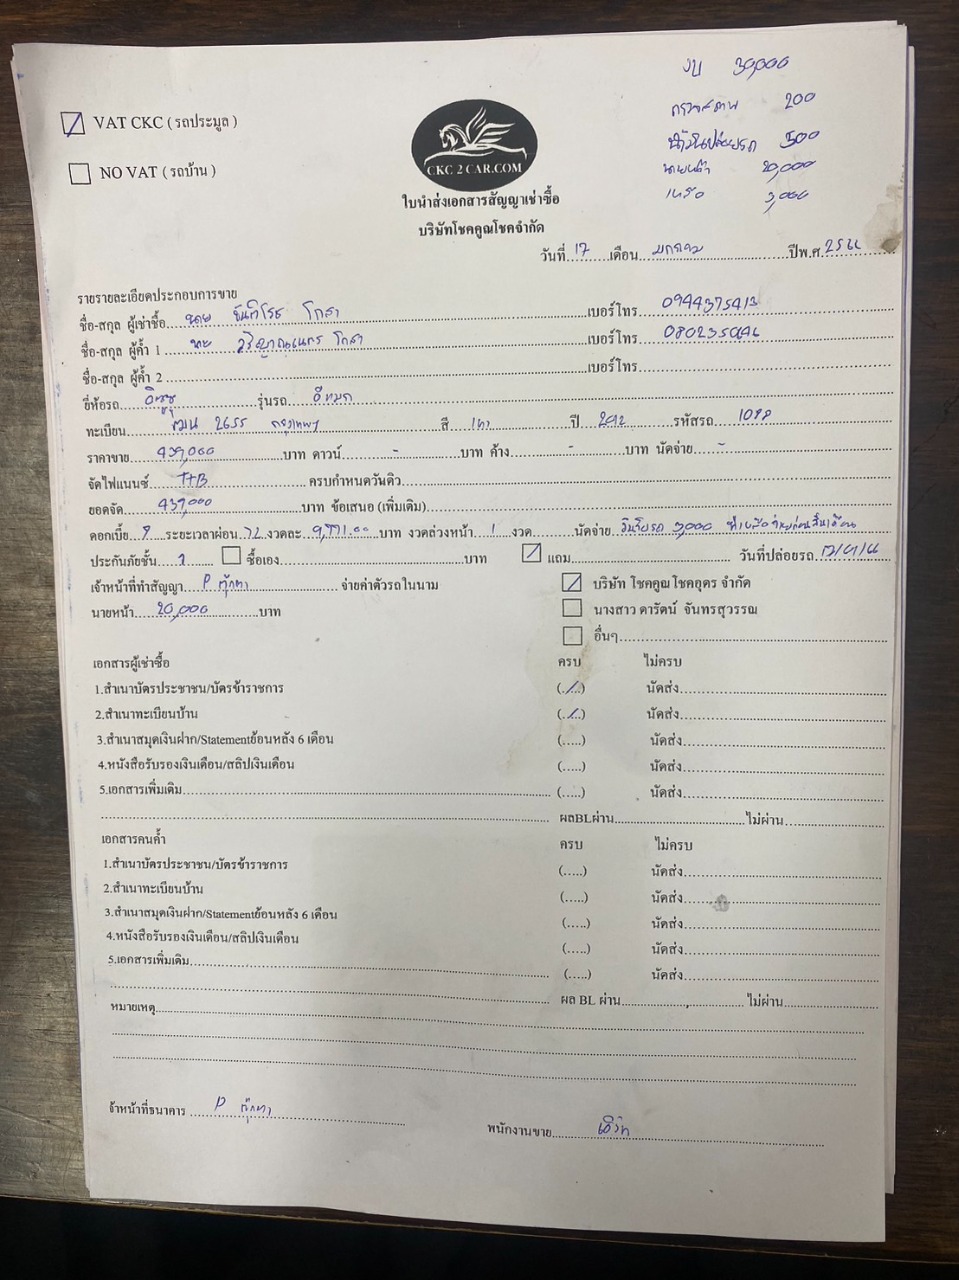 งบ 30,000
ตรวจสภาพ 200
น้ำมันปล่อยรถ 500
นายหน้า 20,000
เหลือ 3,000
VAT CKC ( รถประมูล )
NO VAT ( รถบ้าน )
CKC 2 CAR.COM
ใบนำส่งเอกสารสัญญาเช่าซื้อ
บริษัทโชคคูณโชคจำกัด
วันที่ 17 เดือน มกราคม ปีพ.ศ. 2566
รายรายละเอียดประกอบการขาย
ชื่อ-สกุล ผู้เช่าซื้อ นาย โกสา เบอร์โทร 0944375413
ชื่อ-สกุล ผู้ค้ำ 1 โกสา เบอร์โทร
ชื่อ-สกุล ผู้ค้ำ 2 เบอร์โทร
ยี่ห้อรถ อิซูซุ รุ่นรถ ดีแมก
ทะเบียน ฒน 2655 กรุงเทพฯ สี เทา ปี 2012 รหัสรถ
ราคาขาย 439,000 บาท ดาวน์ - บาท ค้าง - บาท นัดจ่าย -
จัดไฟแนนซ์ TTB ครบกำหนดวันดิว
ยอดจัด บาท ข้อเสนอ (เพิ่มเติม)
ดอกเบี้ย ระยะเวลาผ่อน 72 งวดละ 9,771.00 บาท งวดล่วงหน้า 1 งวด นัดจ่าย
ประกันภัยชั้น ซื้อเอง บาท แถม วันที่ปล่อยรถ 17/01/66
เจ้าหน้าที่ทำสัญญา P ตุ๊กตา จ่ายค่าตัวรถในนาม บริษัท โชคคูณโชคอุดร จำกัด
นายหน้า 20,000 บาท นางสาว ดารัตน์ จันทรสุวรรณ
อื่นๆ
เอกสารผู้เช่าซื้อ ครบ ไม่ครบ
1.สำเนาบัตรประชาชน/บัตรข้าราชการ (../..) นัดส่ง
2.สำเนาทะเบียนบ้าน (../..) นัดส่ง
3.สำเนาสมุดเงินฝาก/Statementย้อนหลัง 6 เดือน (.....) นัดส่ง
4.หนังสือรับรองเงินเดือน/สลิปเงินเดือน (.....) นัดส่ง
5.เอกสารเพิ่มเติม (.....) นัดส่ง
ผลBLผ่าน ไม่ผ่าน
เอกสารคนค้ำ ครบ ไม่ครบ
1.สำเนาบัตรประชาชน/บัตรข้าราชการ (.....) นัดส่ง
2.สำเนาทะเบียนบ้าน (.....) นัดส่ง
3.สำเนาสมุดเงินฝาก/Statementย้อนหลัง 6 เดือน (.....) นัดส่ง
4.หนังสือรับรองเงินเดือน/สลิปเงินเดือน (.....) นัดส่ง
5.เอกสารเพิ่มเติม (.....) นัดส่ง
ผล BL ผ่าน ไม่ผ่าน
หมายเหตุ
จ้าหน้าที่ธนาคาร P ตุ๊กตา
พนักงานขาย